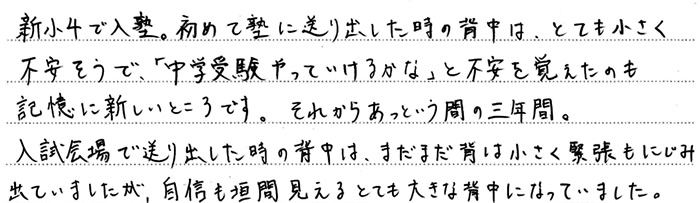 新小4で入塾。初めて塾に送り出した時の背中は、とても小さく
不安そうで、「中学受験やっていけるかな」と不安を覚えたのも
記憶に新しいところです。それからあっという間の三年間。
入試会場で送り出した時の背中は、まだまだ背は小さく緊張もにじみ
出ていましたが、自信も垣間見えるとても大きな背中になっていました。